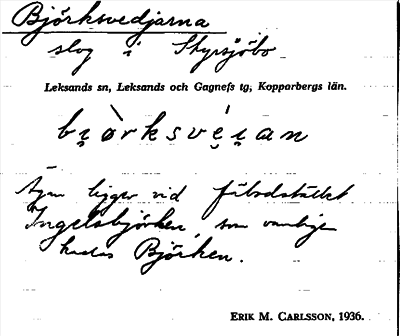 Björksvedjarna
slog i Styrsjöbo
Leksands sn, Leksands och Gagnefs tg, Kopparbergs län.
bi̯òrksvé̯i̯an
Ägan ligger vid fäbodstället
Ingelsbjörken, som vanligen
kallas Björken.
ERIK M. CARLSSON, 1936.